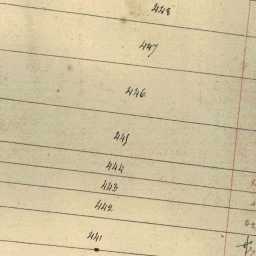 448
447
446
445
444
443
442
441